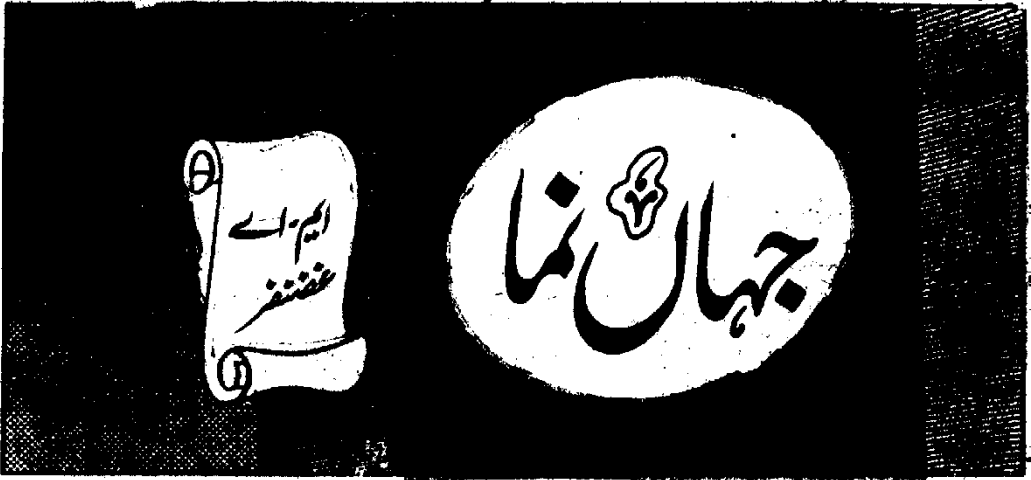 جہاں نما
ایم۔اے
غضنفر